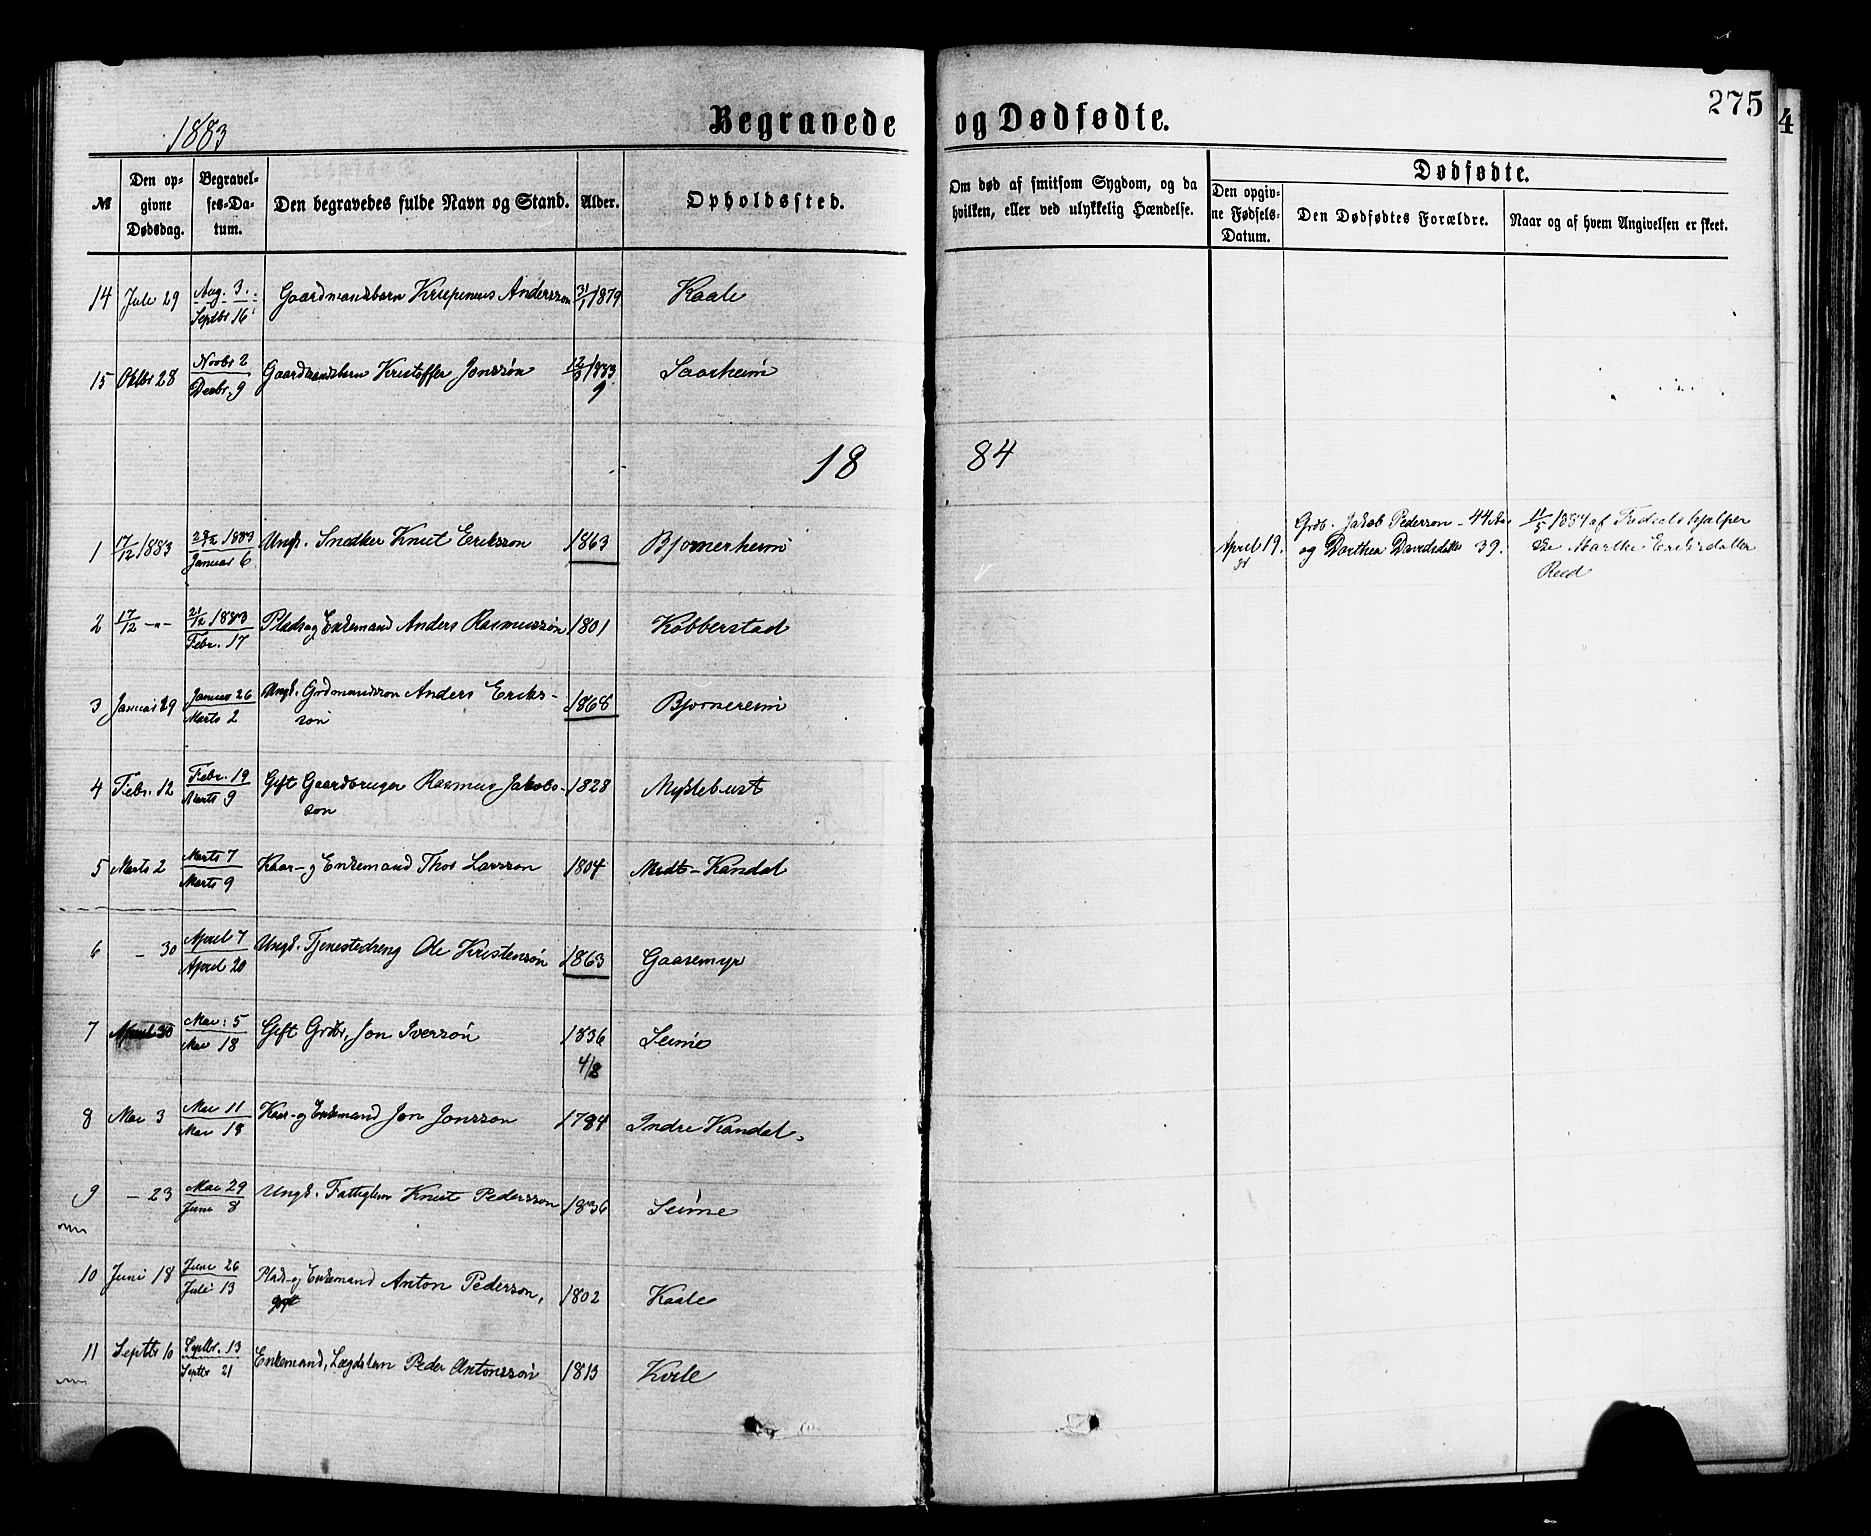 275
4
1883
Begravede og Dødfødte.
№
Den opgivne Dødsdag.
Begravelses-Datum.
Den begravedes fulde Navn og Stand.
Alder.
Opholdssted.
Om død af smitsom Sygdom, og da hvilken, eller ved ulykkelig Hændelse.
Dødfødte.
Den opgivne Fødsels-Datum.
Den Dødfødtes Forældre.
Naar og af hvem Angivelsen er skeet.
14 Juli 29 Aug. 3. Septbr 16 Gaardmandsbarn Andersson 31/1 1879 Kaale
15 Oktbr 28 Novbr 2 Decbr. 9 Gaardmandsbarn Kristoffer Jonssøn 12/9 1883 9 Saarheim
1884
1 17/12 1883 28/12 1883 Januar 6 Ungk. Snedker Knut Eriksson 1863 Bjornerheim
April 19. Grdb. Jakob Pederson - 44 Aar
og Dorthea Davidsdatter 39.
11/5 1884 af Fødselshjælper
ske Marthe Eriksdatter
Reed
2 17/12 -"- 21/12 1883 Febr. 17 Plads og Enkemand Anders Rasmussøn 1801 Kobberstad
3 Januar 29 Januar 26 Marts 2 Ungk. Grdmandsson Anders Eriks-
son 1868 Bjornereim
4 Febr. 12 Febr. 19 Marts 9 Gift Gaardbruger Rasmus Jakobs-
son 1828 Myklebust
5 Marts 2 Marts 7 Marts 9 Kaar- og Enkemand Thor Larsson 1804 Midt-Kandal
6 - 30 April 7 April 20 Ungk. Tjenestedreng Ole Kristensøn 1863 Gaasemyr
7 April 30 Mai 5 Mai 18 Gift Grdbr. Jon Iverssøn 1836 4/8 Seime
8 Mai 3 Mai 11 Mai 18 Kaar- og Enkemand Jon Jonsson 1784 Indre Kandal.
9 - 23 Mai 29 Juni 8 Ungk. Fattiglem Knut Pedersson 1836 Seime
10 Juni 18 Juni 26 Juli 13 Plads- og Enkemand Anton Pederson,
gift 1802 Kaale
11 Septbr 10 Septbr. 13 Septbr 21 Enkemand, Lægdslem Peder Antonssøn 1813 Kvile